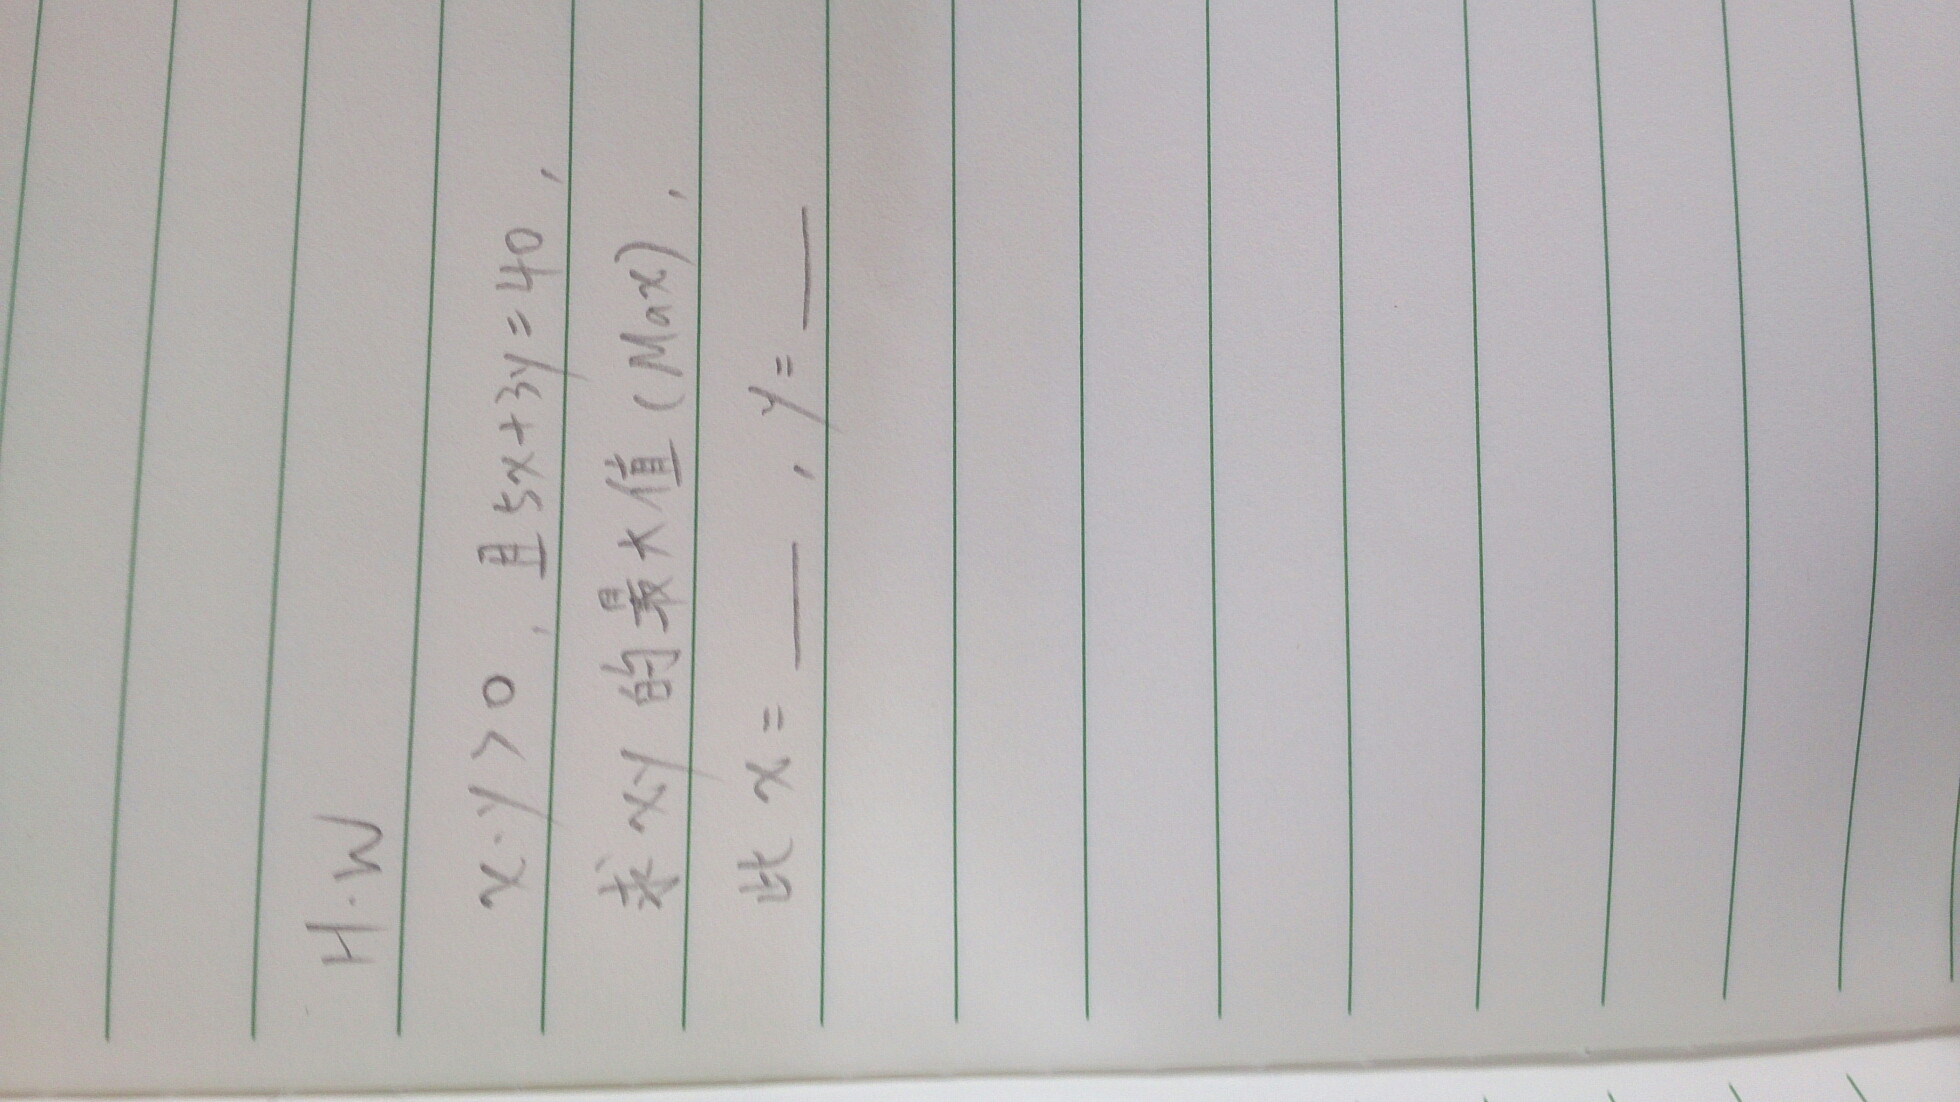 H.W
x.y>0, 且5x+3y=40,
求xy的最大值(Max),
此x=___, y=___